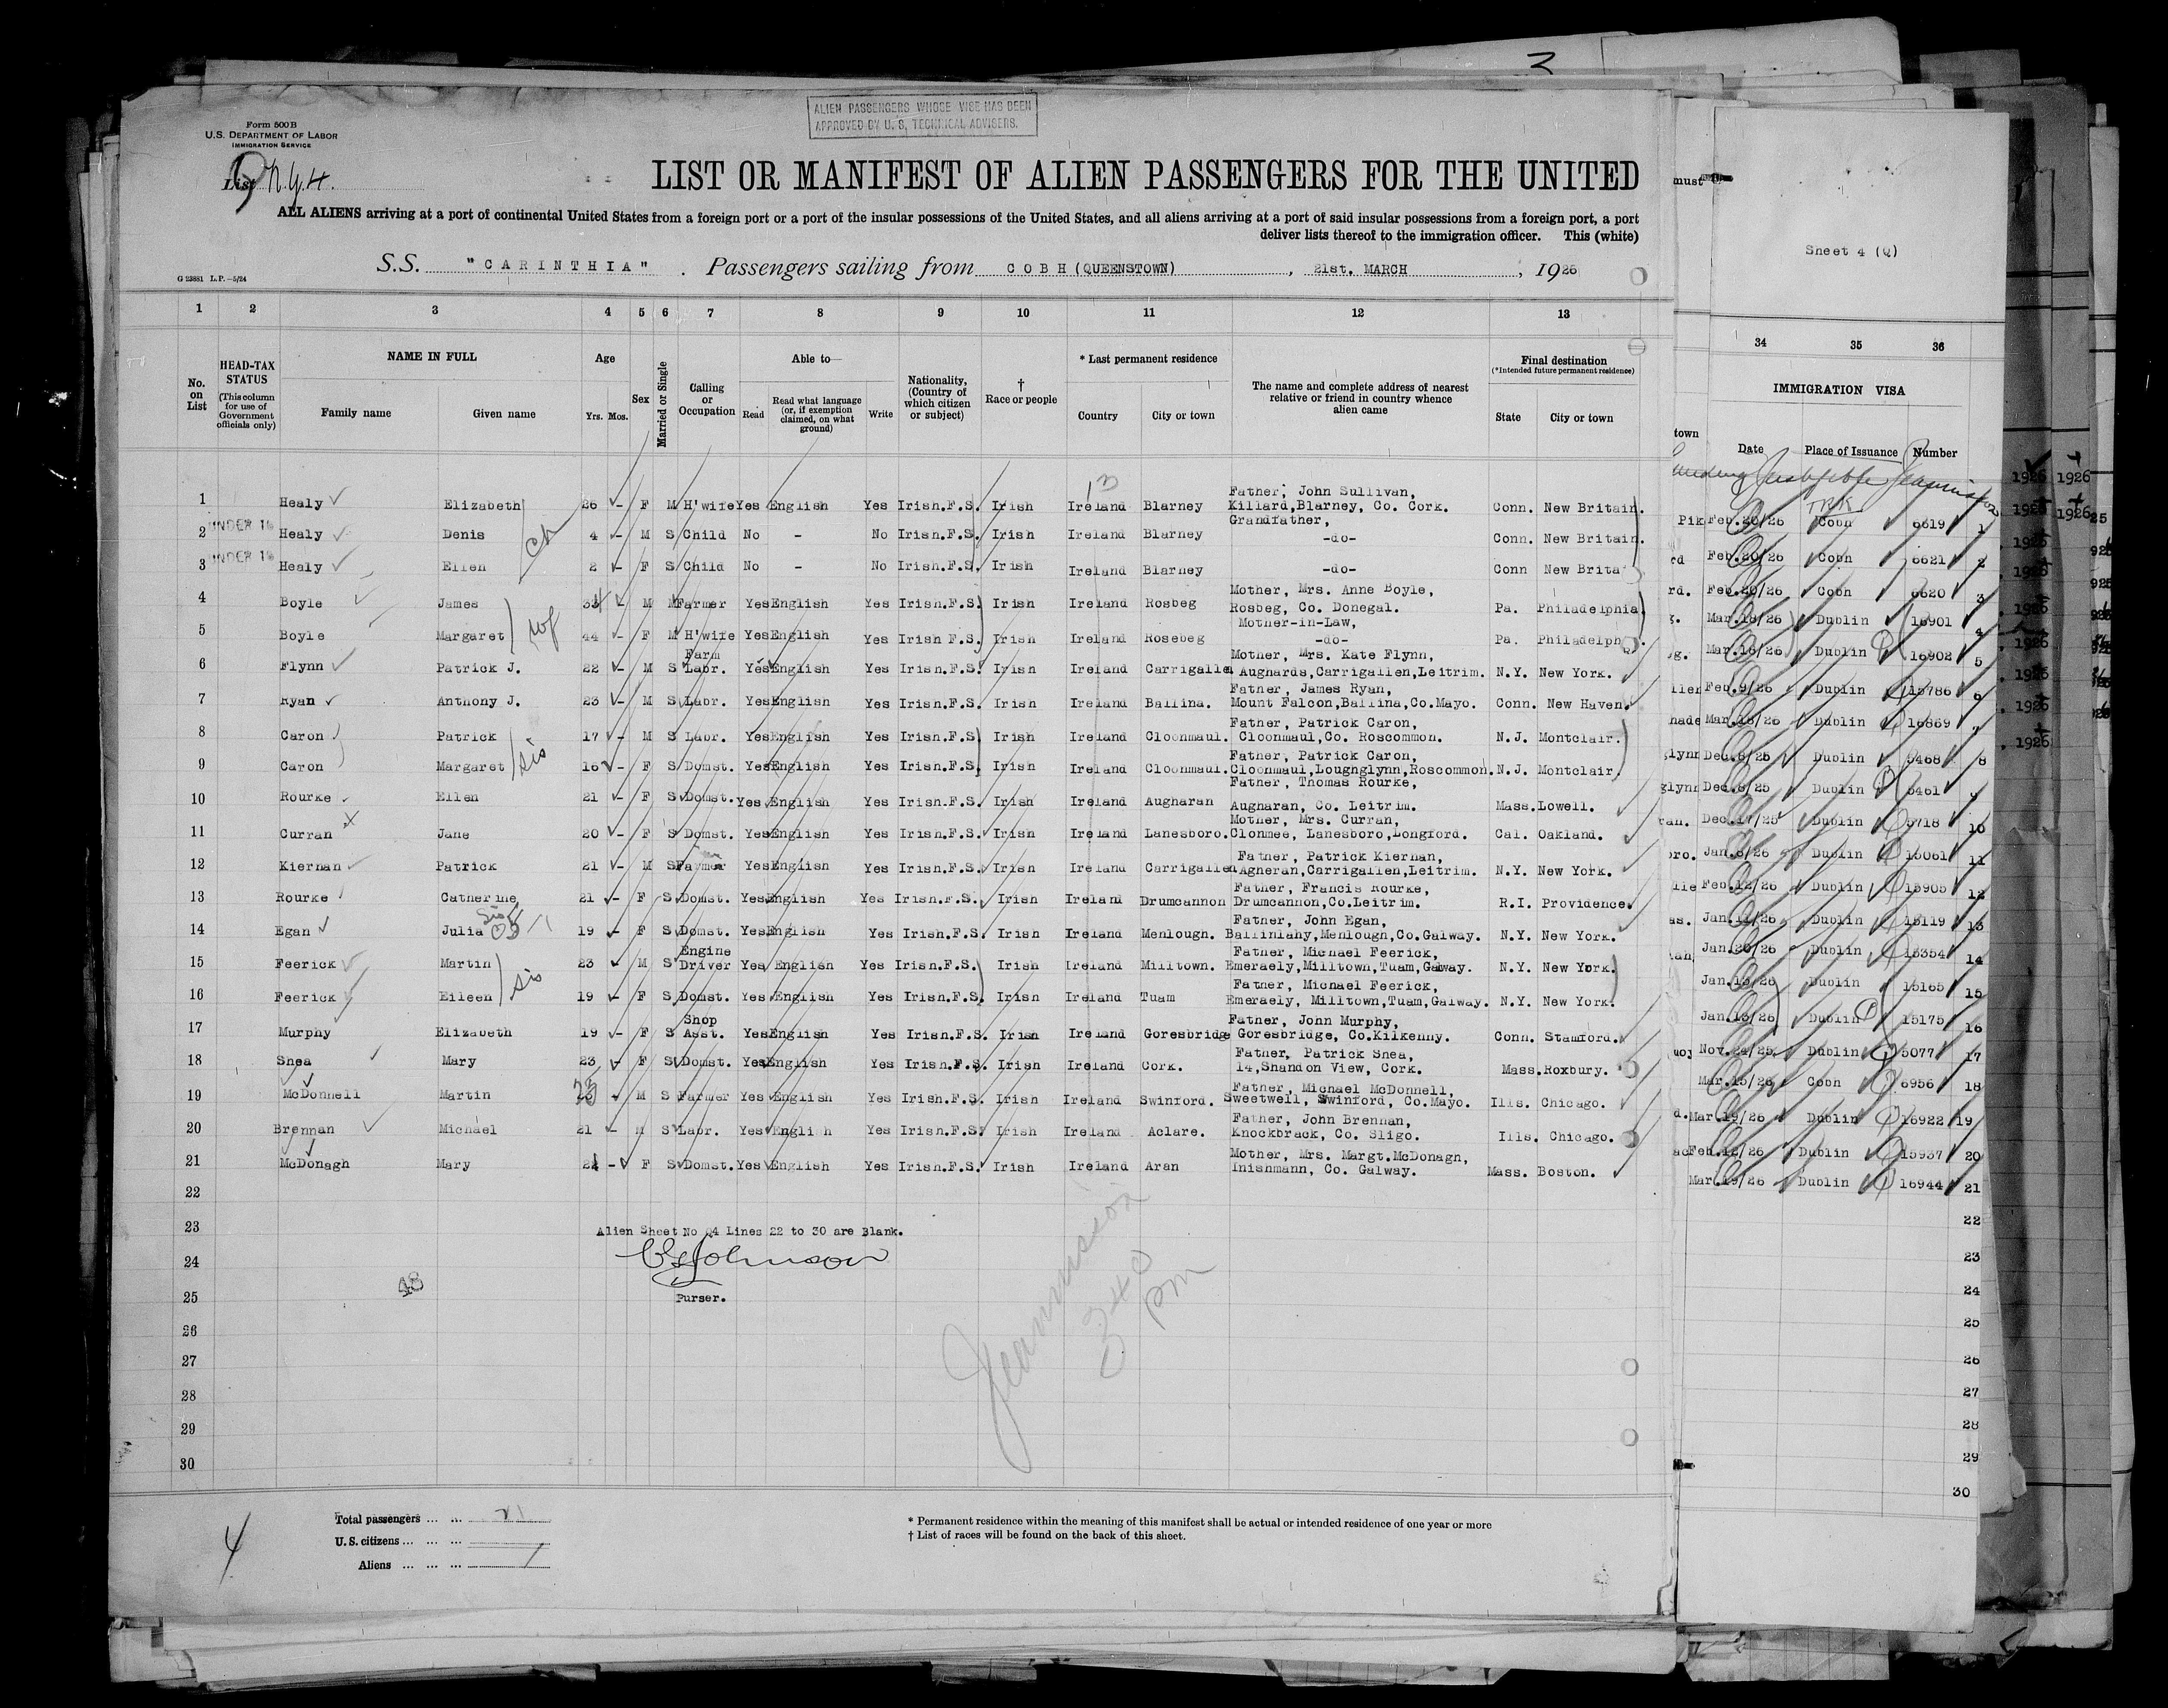 ALIEN PASSENGERS WHOSE VISE HAS BEEN
APPROVED BY U. S, TECHNICAL ADVISERS.
Form 500 B
U.S. DEPARTMENT OF LABOR
IMMIGRATION SERVICE
List
LIST OR MANIFEST OF ALIEN PASSENGERS FOR THE UNITED
ALL ALIENS arriving at a port of continental United States from a foreign port or a port of the insular possessions of the United States, and all aliens arriving at a port of said insular possessions from a foreign port, a port
deliver lists thereof to the immigration officer. This (white)
Sheet 4 (Q)
G 23881 L.P.—5/24
S.S. "CARINTHIA". Passengers sailing from COBH (QUEENSTOWN), 21st. MARCH, 1926
1 2 3 4 5 6 7 8 9 10 11 12 13 34 35 36
No. on List
HEAD-TAX STATUS
(This column for use of Government officials only)
NAME IN FULL
Family name Given name
Age
Yrs. Mos.
Sex
Married or Single
Calling or Occupation
Able to—
Read
Read what language (or, if exemption claimed, on what ground)
Write
Nationality, (Country of which citizen or subject)
† Race or people
* Last permanent residence
Country City or town
The name and complete address of nearest relative or friend in country whence alien came
Final destination
(*Intended future permanent residence)
State City or town
IMMIGRATION VISA
Date Place of Issuance Number
1 Healy Elizabeth 26 - F M H'wife Yes English Yes Irish.F.S. Irish Ireland Blarney Father, John Sullivan, Killard,Blarney, Co. Cork. Conn. New Britain. Feb.20/26 Cobh 6619 1
2 UNDER 16 Healy Denis 4 - M S Child No - No Irish.F.S. Irish Ireland Blarney Grandfather, -do- Conn. New Britain. Feb.20/26 Cobh 6621 2
3 UNDER 16 Healy Ellen 2 - F S Child No - No Irish.F.S. Irish Ireland Blarney -do- Conn New Brita Feb.20/26 Cobh 6620 3
4 Boyle James - M M Farmer Yes English Yes Irish.F.S. Irish Ireland Rosbeg Mother, Mrs. Anne Boyle, Rosbeg, Co. Donegal. Pa. Philadelphia. Mar.16/26 Dublin 16901 4
5 Boyle Margaret wf 44 - F M H'wife Yes English Yes Irish F.S. Irish Ireland Rosebeg Mother-in-Law, -do- Pa. Philadelph Mar.16/26 Dublin 16902 5
6 Flynn Patrick J. 22 - M S Farm Labr. Yes English Yes Irish.F.S. Irish Ireland Carrigallen Mother, Mrs. Kate Flynn, Aughards,Carrigallen,Leitrim. N.Y. New York. Feb.9/26 Dublin 15786 6
7 Ryan Anthony J. 23 - M S Labr. Yes English Yes Irish.F.S. Irish Ireland Ballina. Father, James Ryan, Mount Falcon,Ballina,Co.Mayo. Conn. New Haven. Mar.16/26 Dublin 16869 7
8 Caron Patrick 17 - M S Labr. Yes English Yes Irish.F.S Irish Ireland Cloonmaul. Father, Patrick Caron, Cloonmaul,Co. Roscommon. N.J. Montclair. Dec.8/25 Dublin 5468 8
9 Caron Margaret sis 16 - F S Domst. Yes English Yes Irish.F.S. Irish Ireland Cloonmaul. Father, Patrick Caron, Cloonmaul,Loughglynn,Roscommon. N.J. Montclair. Dec.8/25 Dublin 5461 9
10 Rourke Ellen 21 - F S Domst. Yes English Yes Irish.F.S. Irish Ireland Augharan Father, Thomas Rourke, Augharan, Co. Leitrim. Mass. Lowell. Dec.17/25 Dublin 5718 10
11 Curran Jane 20 - F S Domst. Yes English Yes Irish.F.S. Irish Ireland Lanesboro. Mother, Mrs. Curran, Clonmee, Lanesboro,Longford. Cal. Oakland. Jan.8/26 Dublin 15061 11
12 Kiernan Patrick 21 - M S Farmer Yes English Yes Irish.F.S. Irish Ireland Carrigallen Father, Patrick Kiernan, Agheran,Carrigallen,Leitrim. N.Y. New York. Feb.12/26 Dublin 15905 12
13 Rourke Catherine 21 - F S Domst. Yes English Yes Irish.F.S. Irish Ireland Drumcannon Father, Francis Rourke, Drumcannon,Co.Leitrim. R.I. Providence. Jan.11/26 Dublin 15119 13
14 Egan Julia 19 - F S Domst. Yes English Yes Irish.F.S. Irish Ireland Menlough. Father, John Egan, Ballinlahy,Menlough,Co.Galway. N.Y. New York. Jan.20/26 Dublin 15354 14
15 Feerick Martin 23 M S Engine Driver Yes English Yes Irish.F.S. Irish Ireland Milltown. Father, Michael Feerick, Emeraely,Milltown,Tuam,Galway. N.Y. New York. Jan.13/26 Dublin 15165 15
16 Feerick Eileen sis 19 - F S Domst. Yes English Yes Irish.F.S. Irish Ireland Tuam Father, Michael Feerick, Emeraely, Milltown,Tuam,Galway. N.Y. New York. Jan.13/26 Dublin 15175 16
17 Murphy Elizabeth 19 - F S Shop Asst. Yes English Yes Irish.F.S. Irish Ireland Goresbridge Father, John Murphy, Goresbridge, Co.Kilkenny. Conn. Stamford. Nov.24/25 Dublin 5077 17
18 Shea Mary 23 - F S Domst. Yes English Yes Irish.F.S. Irish Ireland Cork. Father, Patrick Shea, 14,Shandon View, Cork. Mass. Roxbury. Mar.15/26 Cobh 6956 18
19 McDonnell Martin M S Farmer Yes English Yes Irish.F.S. Irish Ireland Swinford. Father, Michael McDonnell, Sweetwell, Swinford, Co.Mayo. Ills. Chicago. Mar.19/26 Dublin 16922 19
20 Brennan Michael 21 - M S Labr. Yes English Yes Irish.F.S. Irish Ireland Aclare. Father, John Brennan, Knockbrack, Co. Sligo. Ills. Chicago. Feb.12/26 Dublin 15937 20
21 McDonagh Mary - F S Domst. Yes English Yes Irish.F.S. Irish Ireland Aran Mother, Mrs. Margt.McDonagh, Inishmann, Co. Galway. Mass. Boston. Mar.19/26 Dublin 16944 21
22 22
23 Alien Sheet No Q4 Lines 22 to 30 are Blank. 23
24 Johnson 24
25 Purser. 25
48
26 26
27 27
28 28
29 29
30 30
Jeannisson
340
pm
4
Total passengers ... ... 21
U. S. citizens ... ... ...
Aliens ... ... ...
* Permanent residence within the meaning of this manifest shall be actual or intended residence of one year or more
† List of races will be found on the back of this sheet.